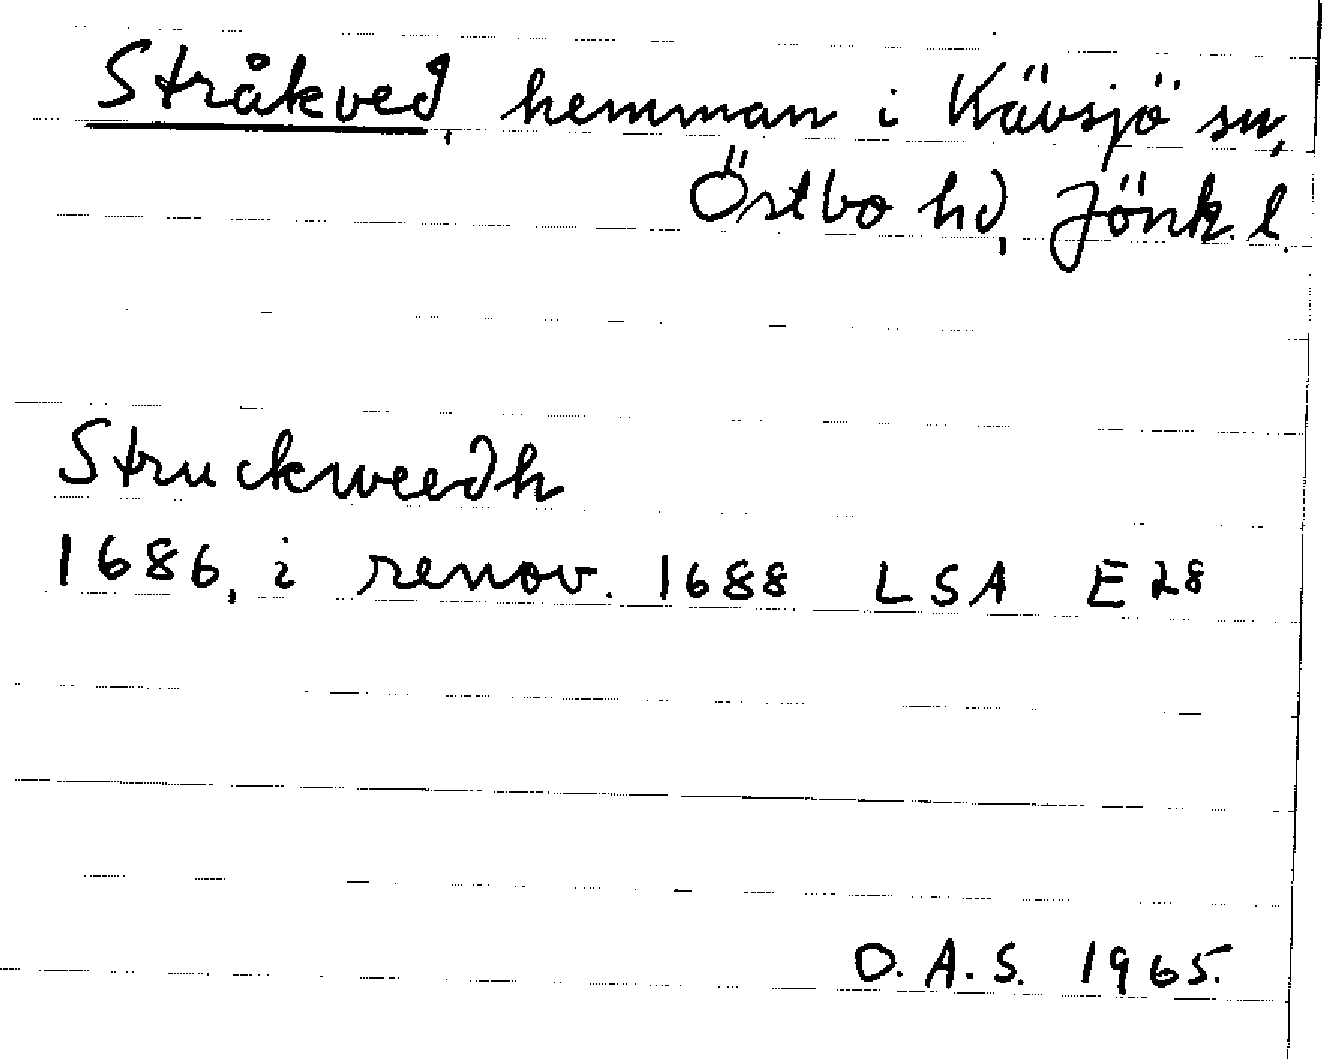 Stråkved, hemman i Kävsjö sn,
Östbo hd, Jönk. l.
Struckweedh
1686, i renov. 1688 LSA E28
O.A.S. 1965.